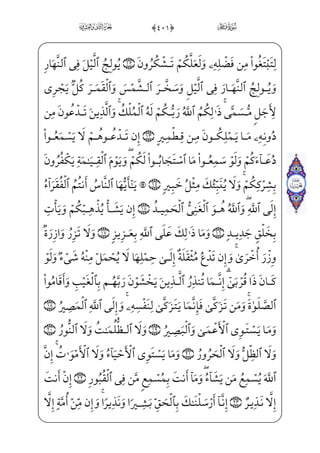 ﴿٤٠١﴾
لِتَبْتَغُوا۟ مِن فَضْلِهِۦ وَلَعَلَّكُمْ تَشْكُرُونَ ١٢ يُولِجُ ٱلَّيْلَ فِى ٱلنَّهَارِ
وَيُولِجُ ٱلنَّهَارَ فِى ٱلَّيْلِ وَسَخَّرَ ٱلشَّمْسَ وَٱلْقَمَرَ كُلٌّ يَجْرِى
لِأَجَلٍ مُّسَمًّى ۚ ذَٰلِكُمُ ٱللَّهُ رَبُّكُمْ لَهُ ٱلْمُلْكُ ۚ وَٱلَّذِينَ تَدْعُونَ مِن
دُونِهِۦ مَا يَمْلِكُونَ مِن قِطْمِيرٍ ١٣ إِن تَدْعُوهُمْ لَا يَسْمَعُوا۟
دُعَآءَكُمْ وَلَوْ سَمِعُوا۟ مَا ٱسْتَجَابُوا۟ لَكُمْ ۖ وَيَوْمَ ٱلْقِيَٰمَةِ يَكْفُرُونَ
بِشِرْكِكُمْ ۚ وَلَا يُنَبِّئُكَ مِثْلُ خَبِيرٍ ١٤ ۞ يَٰٓأَيُّهَا ٱلنَّاسُ أَنتُمُ ٱلْفُقَرَآءُ
إِلَى ٱللَّهِ ۖ وَٱللَّهُ هُوَ ٱلْغَنِىُّ ٱلْحَمِيدُ ١٥ إِن يَشَأْ يُذْهِبْكُمْ وَيَأْتِ
بِخَلْقٍ جَدِيدٍ ١٦ وَمَا ذَٰلِكَ عَلَى ٱللَّهِ بِعَزِيزٍ ١٧ وَلَا تَزِرُ وَازِرَةٌ
وِزْرَ أُخْرَىٰ ۚ وَإِن تَدْعُ مُثْقَلَةٌ إِلَىٰ حِمْلِهَا لَا يُحْمَلْ مِنْهُ شَىْءٌ وَلَوْ
كَانَ ذَا قُرْبَىٰٓ ۗ إِنَّمَا تُنذِرُ ٱلَّذِينَ يَخْشَوْنَ رَبَّهُم بِٱلْغَيْبِ وَأَقَامُوا۟
ٱلصَّلَوٰةَ ۚ وَمَن تَزَكَّىٰ فَإِنَّمَا يَتَزَكَّىٰ لِنَفْسِهِۦ ۚ وَإِلَى ٱللَّهِ ٱلْمَصِيرُ ١٨
وَمَا يَسْتَوِى ٱلْأَعْمَىٰ وَٱلْبَصِيرُ ١٩ وَلَا ٱلظُّلُمَٰتُ وَلَا ٱلنُّورُ ٢٠
وَلَا ٱلظِّلُّ وَلَا ٱلْحَرُورُ ٢١ وَمَا يَسْتَوِى ٱلْأَحْيَآءُ وَلَا ٱلْأَمْوَٰتُ ۚ إِنَّ
ٱللَّهَ يُسْمِعُ مَن يَشَآءُ ۖ وَمَآ أَنتَ بِمُسْمِعٍ مَّن فِى ٱلْقُبُورِ ٢٢ إِنْ أَنتَ
إِلَّا نَذِيرٌ ٢٣ إِنَّآ أَرْسَلْنَٰكَ بِٱلْحَقِّ بَشِيرًا وَنَذِيرًا ۚ وَإِن مِّنْ أُمَّةٍ إِلَّا